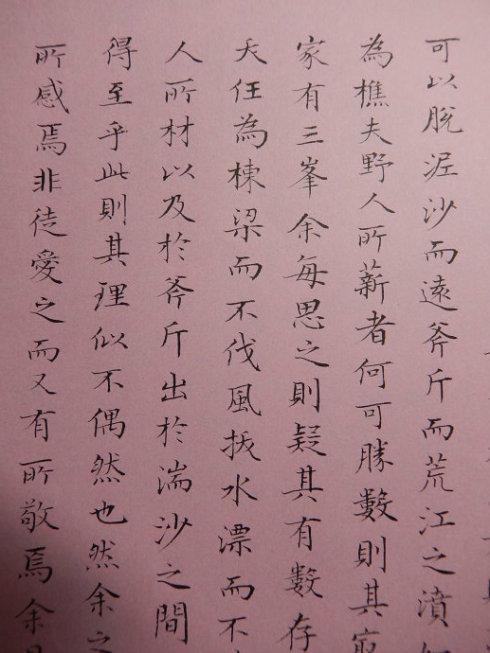 可以脫泥沙而遠斧斤而荒江之濆
為樵夫野人所薪者何可勝數則其
家有三峯余每思之則疑其有數存
夭任為棟梁而不伐風拔水漂而不
人所材以及於斧斤出於湍沙之間
得至乎此則其理似不偶然也然余之
所感焉非徒愛之而又有所敬焉余